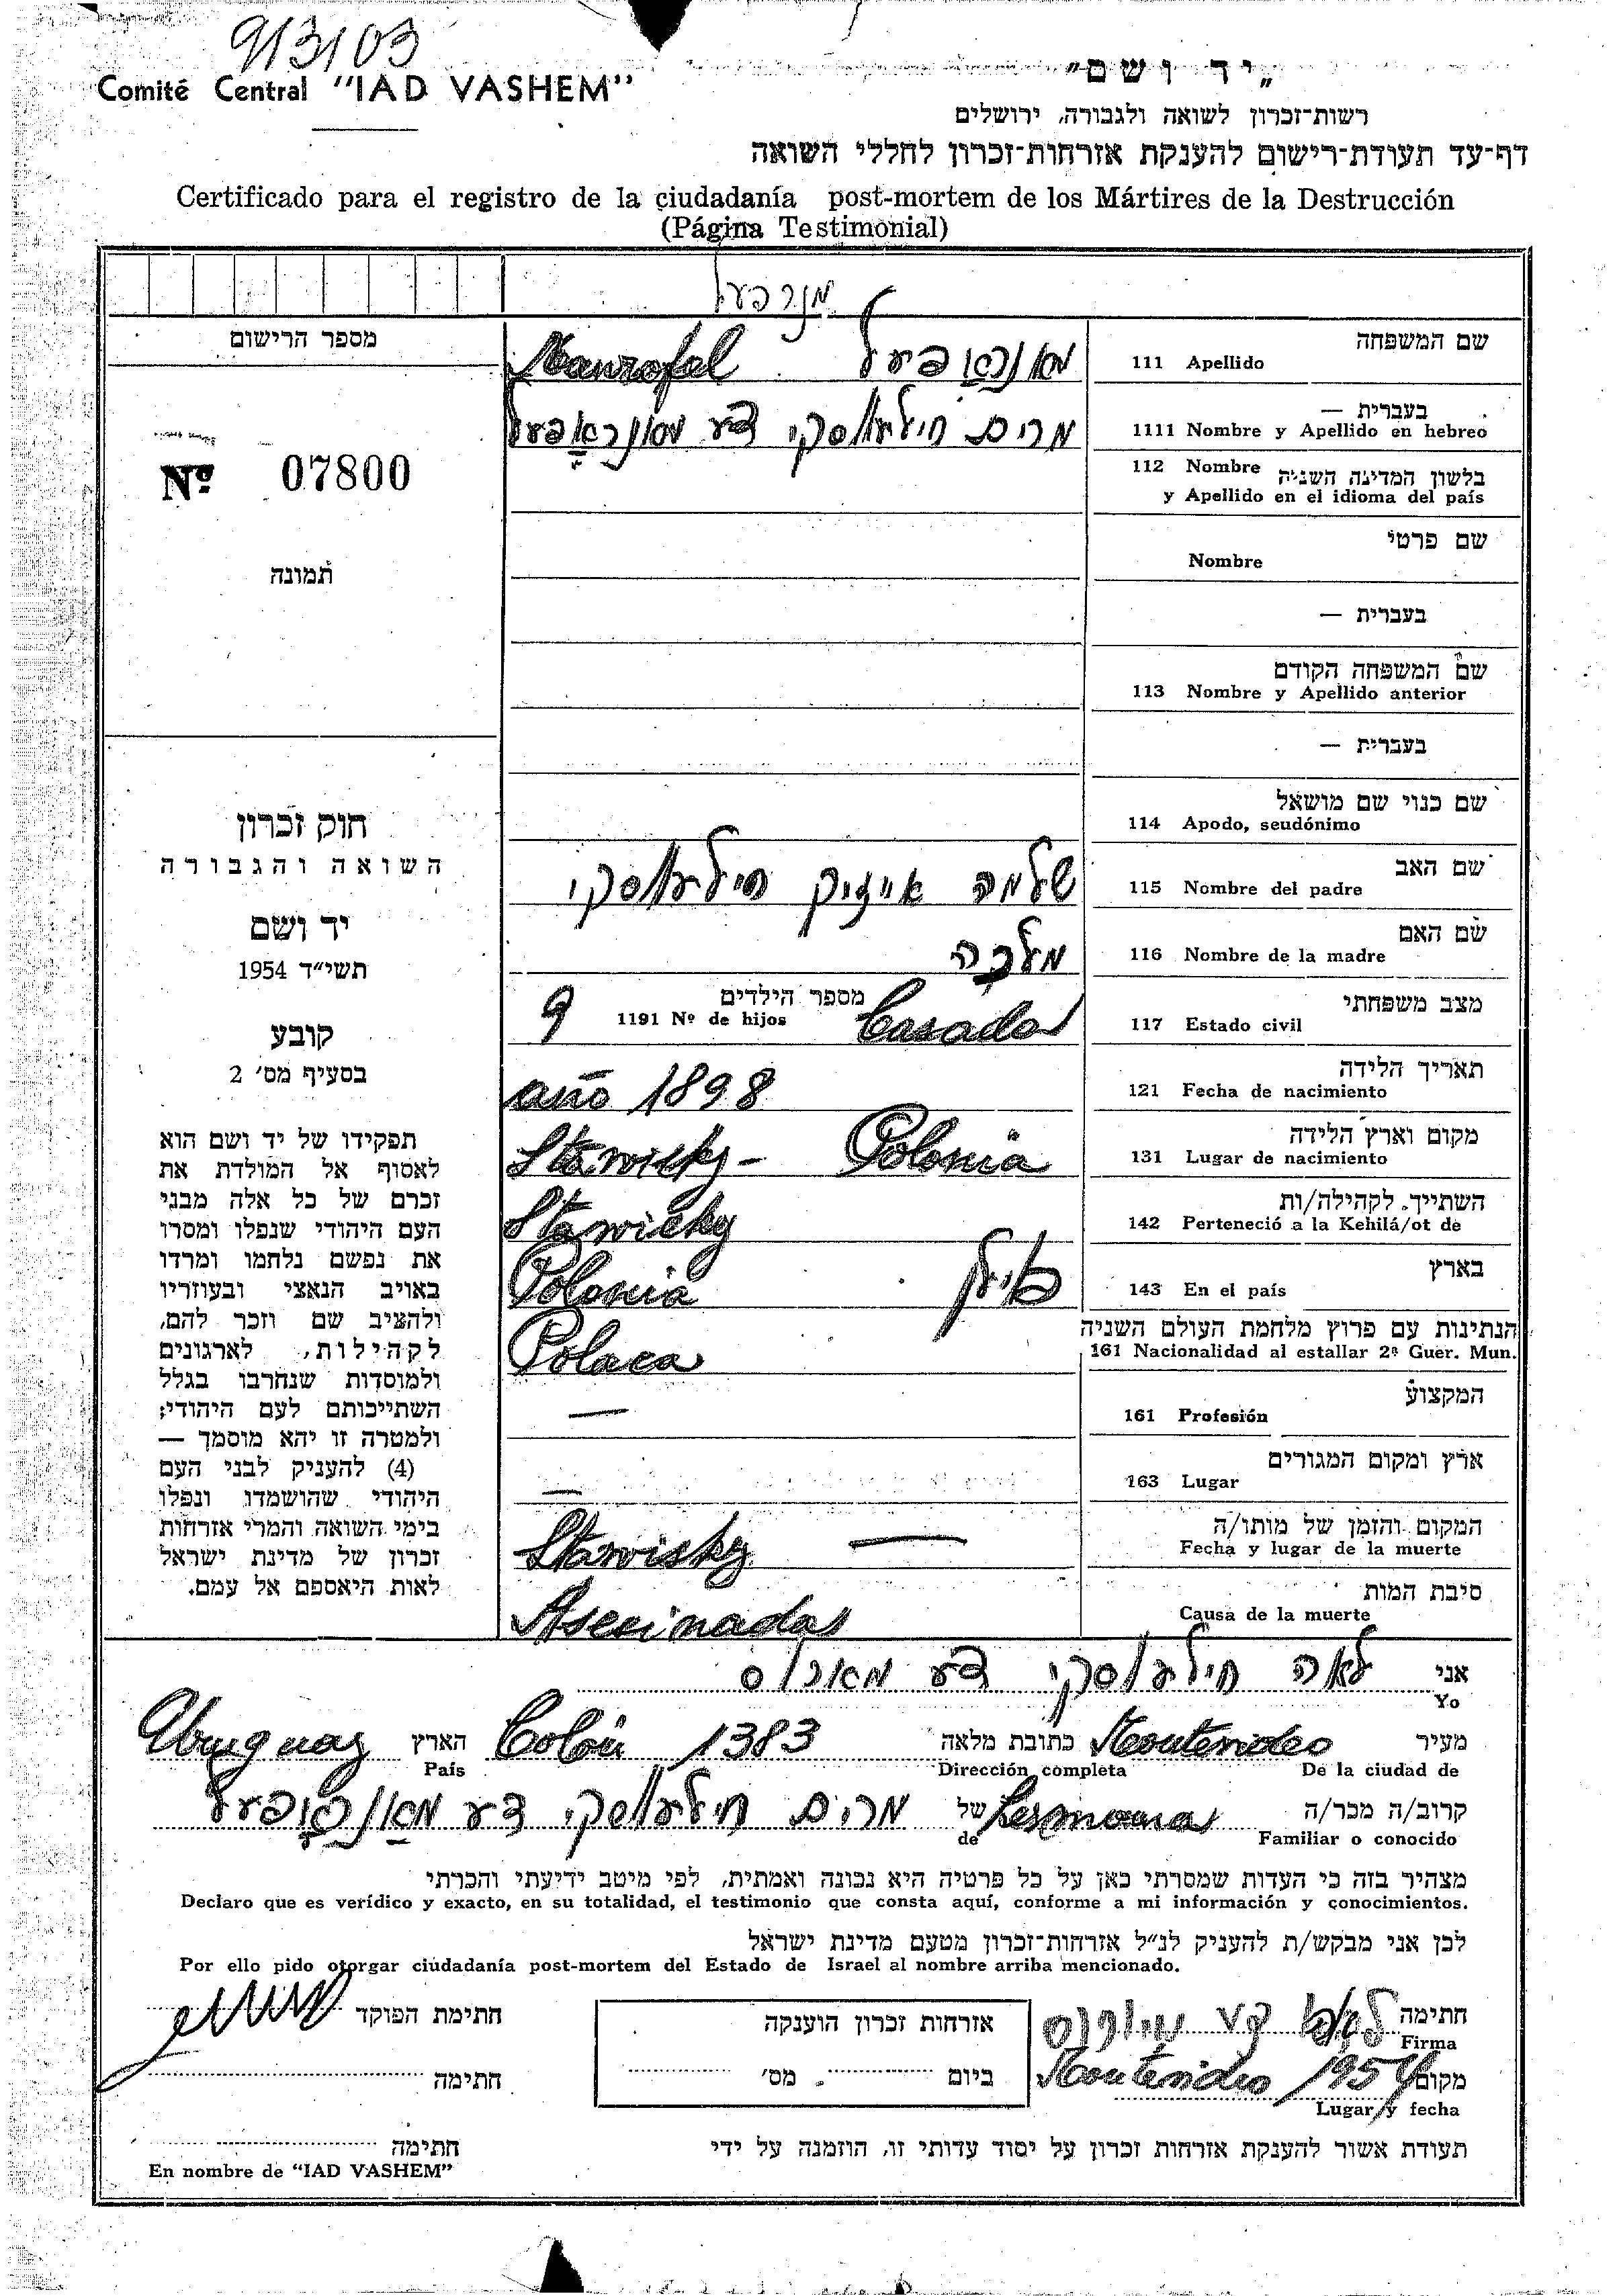 913103
Comité Central "IAD VASHEM"
"יד ושם"
רשות־זכרון לשואה ולגבורה, ירושלים
דף־עד תעודת־רישום להענקת אזרחות־זכרון לחללי השואה
Certificado para el registro de la ciudadanía post-mortem de los Mártires de la Destrucción
(Página Testimonial)
מנרפעל
מספר הרישום
שם המשפחה
111 Apellido
Manrofel מאנראפיעל
בעברית —
1111 Nombre y Apellido en hebreo
מרים חילעווסקי דע מאנראפעל
Nº 07800
112 Nombre בלשון המדינה השניה
y Apellido en el idioma del país
שם פרטי
Nombre
תמונה
בעברית —
שם המשפחה הקודם
113 Nombre y Apellido anterior
בעברית —
שם כנוי שם מושאל
114 Apodo, seudónimo
חוק זכרון
השואה והגבורה
שם האב
115 Nombre del padre
שלמה אייזיק חילעווסקי
יד ושם
תשי"ד 1954
שם האם
116 Nombre de la madre
מלכה
מצב משפחתי
117 Estado civil
Casada
מספר הילדים
1191 Nº de hijos
9
קובע
בסעיף מס' 2
תאריך הלידה
121 Fecha de nacimiento
año 1898
מקום וארץ הלידה
131 Lugar de nacimiento
Stawisky - Polonia
השתייך לקהילה/ות
142 Perteneció a la Kehilá/ot de
Stawicky
בארץ
143 En el país
Polonia פוילן
הנתינות עם פרוץ מלחמת העולם השניה
161 Nacionalidad al estallar 2ª Guer. Mun.
Polaca
המקצוע
161 Profesión
—
ארץ ומקום המגורים
163 Lugar
—
המקום והזמן של מותו/ה
Fecha y lugar de la muerte
Stawisky —
סיבת המות
Causa de la muerte
Asecinadas
תפקידו של יד ושם הוא
לאסוף אל המולדת את
זכרם של כל אלה מבני
העם היהודי שנפלו ומסרו
את נפשם נלחמו ומרדו
באויב הנאצי ובעוזריו
ולהציב שם וזכר להם,
לקהילות, לארגונים
ולמוסדות שנחרבו בגלל
השתייכותם לעם היהודי;
ולמטרה זו יהא מוסמך —
(4) להעניק לבני העם
היהודי שהושמדו ונפלו
בימי השואה והמרי אזרחות
זכרון של מדינת ישראל
לאות היאספם אל עמם.
אני לאה חילעווסקי דע מארוס
Yo
מעיר Montevideo כתובת מלאה Colón 1383 הארץ Uruguay
De la ciudad de Dirección completa País
קרוב/ה מכר/ה Lermana של מרים חילעווסקי דע מאנראפעל
Familiar o conocido de
מצהיר בזה כי העדות שמסרתי כאן על כל פרטיה היא נכונה ואמתית, לפי מיטב ידיעתי והכרתי
Declaro que es verídico y exacto, en su totalidad, el testimonio que consta aquí, conforme a mi información y conocimientos.
לכן אני מבקש/ת להעניק לנ"ל אזרחות־זכרון מטעם מדינת ישראל
Por ello pido otorgar ciudadanía post-mortem del Estado de Israel al nombre arriba mencionado.
חתימה לאה דע מארוס
Firma
אזרחות זכרון הוענקה
חתימת הפוקד
מקום Montevideo 1954
Lugar y fecha
ביום מס'
חתימה
תעודת אשור להענקת אזרחות זכרון על יסוד עדותי זו, הוזמנה על ידי
חתימה
En nombre de "IAD VASHEM"